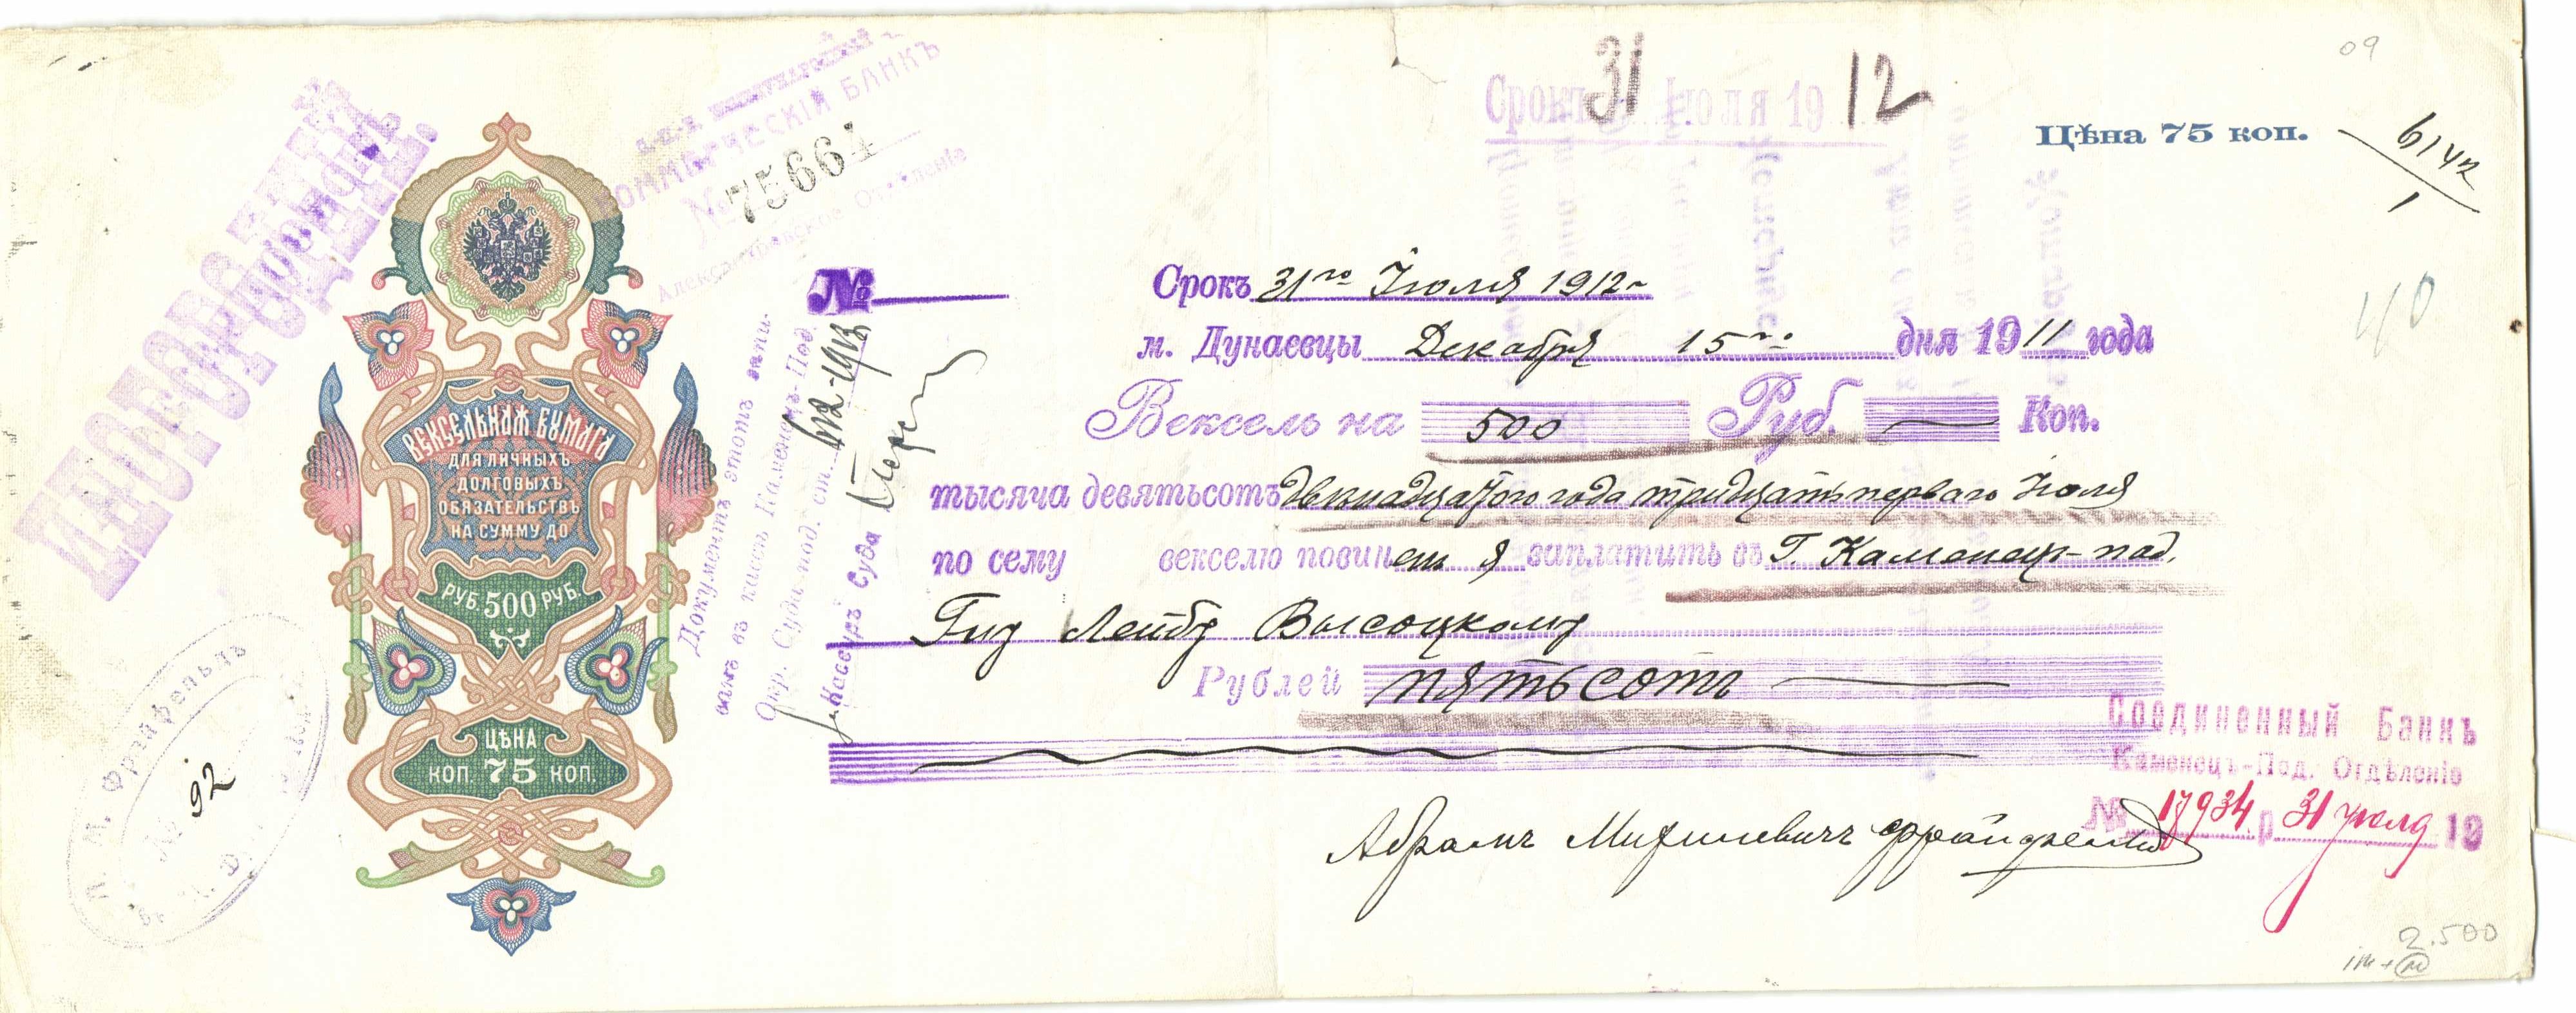 09
Срокъ 31 Іюля 1912
Цѣна 75 коп.
6142
1
40
ИНОГОРОДНІЙ.
КОММЕРЧЕСКІЙ БАНКЪ
№ 75661
Отдѣленіе
№
Срокъ 31го Іюля 1912
м. Дунаевцы Декабря 15го дня 1911 года
Вексель на 500 Руб. — Коп.
тысяча девятьсотъ двѣнадцатого года тридцать перваго Іюля
по сему векселю повиненъ я заплатить въ Г. Каменец-под.
Лейбу Высоцкому
Рублей пятьсотъ
ВЕКСЕЛЬНАЯ БУМАГА
ДЛЯ ЛИЧНЫХЪ
ДОЛГОВЫХЪ
ОБЯЗАТЕЛЬСТВЪ
НА СУММУ ДО
РУБ. 500 РУБ.
ЦѢНА
КОП. 75 КОП.
Документъ этотъ запи-
санъ въ книгѣ Каменецъ-Под.
Окр. Суда под. ст.
Кассиръ Суда
№ 92
Соединенный Банкъ
Каменецъ-Под. Отдѣленіе
№ 17934 р 31 Іюля 19
Абрамъ
2.500